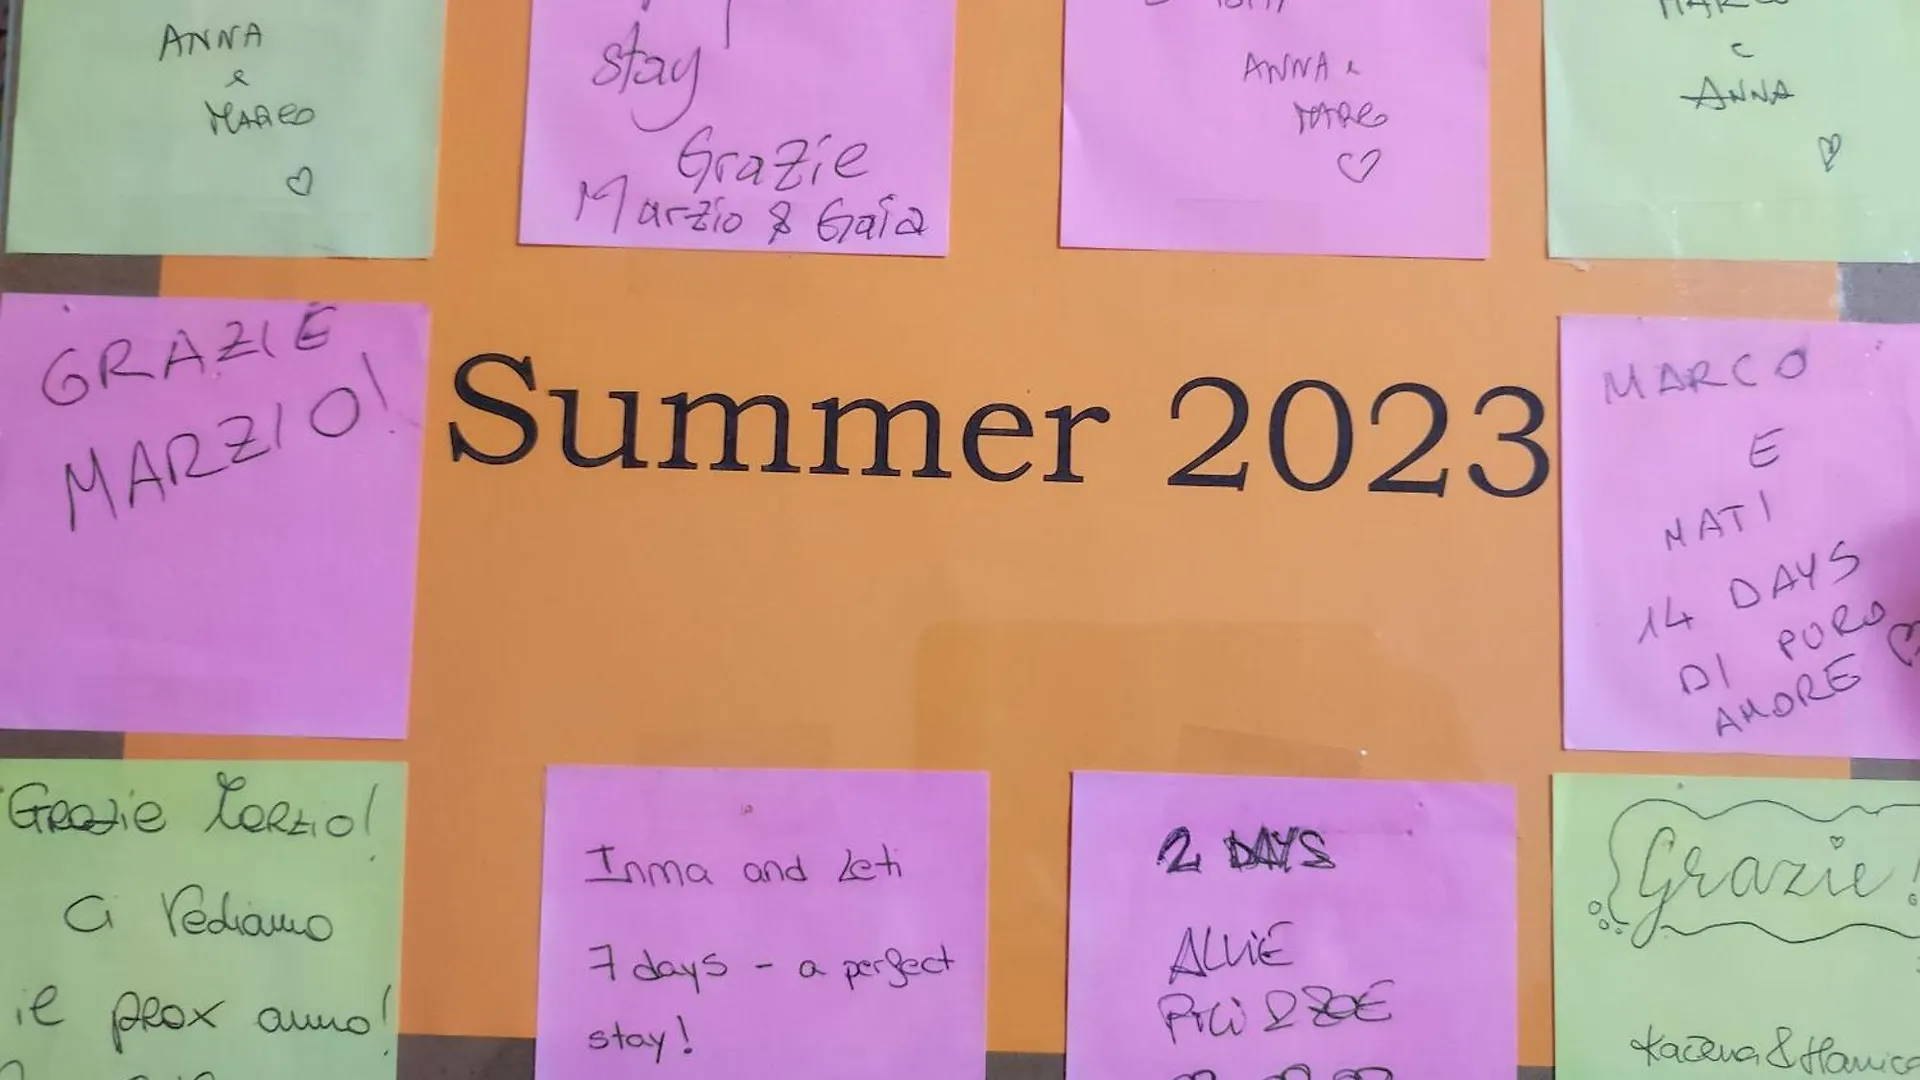 ANNA
e
MARCO
stay
Grazie
Marzio & Gaia
ANNA e
MARCO
MARCO
e
ANNA
GRAZIE
MARZIO!
Summer 2023
MARCO
E
NATI
14 DAYS
DI PURO
AMORE
Grazie Marzio!
Ci Vediamo
il prox anno!
Inma and Leti
7 days - a perfect
stay!
2 DAYS
ALLIE
PILI & ZOE
Grazie!